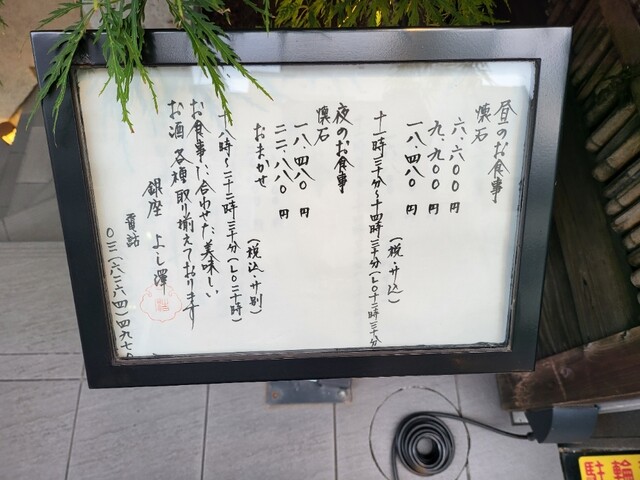 昼のお食事
懐石
六、六〇〇円
九、九〇〇円
一八、四八〇円
(税・サ込)
十一時三十分~十四時三十分(LO十三時三十分
夜のお食事
懐石
一八、四八〇円
おまかせ
二二、八八〇円
(税込・サ別)
十八時~二十二時三十分(LO二十時)
お食事に合わせた美味しい
お酒各種取り揃えております
銀座 よし澤
電話
〇三(六二六四)四九七〇
駐輪